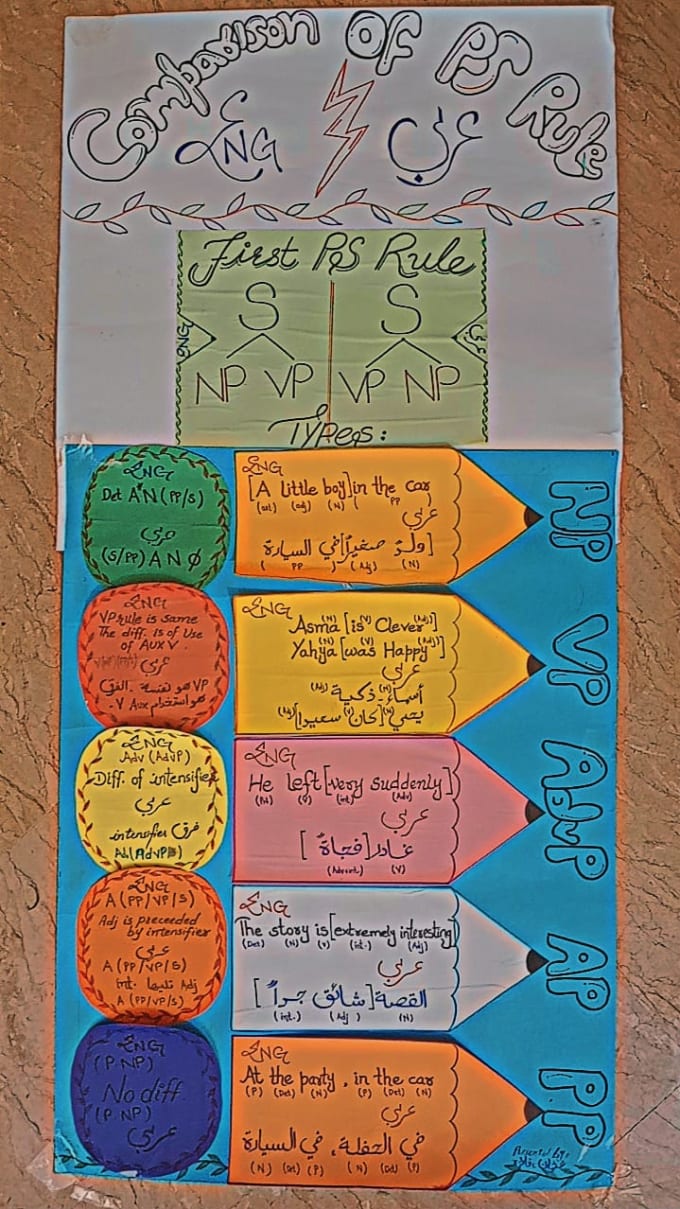 Comparison of PS Rule
ENG عربي
First PS Rule
ENG S S عربي
NP VP VP NP
Types:
ENG
Det A N (PP/S)
عربي
(S/PP) A N Ø
ENG
[A little boy] in the car
(det) (adj) (N) ( PP )
عربي
[ولدٌ صغيرٌ] في السيارة
( PP ) (Adj) (N)
NP
ENG
VP rule is same
The diff. is of Use
of AUX V.
عربي
VP هو نفسة. الفرق
هو استخدام V Aux.
ENG
Asma (N) [is (V) Clever (Adj)]
Yahya (N) [was (V) Happy (Adj)]
عربي
أسماء (N) ذكية (Adj)
يحيى (N) [كان (V) سعيدا (Adj)]
VP
ENG
Adv (AdvP)
Diff. of intensifier
عربي
فرق intensifier
ENG
He left [very suddenly]
(N) (V) (int) (Adv)
عربي
غادر [فجاةً ]
(V)
AdvP
ENG
A (PP/VP/S)
Adj is preceeded
by intensifier
عربي
A (PP/VP/S)
Adj تليها int.
A (PP/VP/S)
ENG
The story is [extremely interesting]
(Det) (N) (v) (int.) (Adj)
عربي
القصة [شائق جداً ]
(int.) (Adj) (N)
AP
ENG
(P. NP)
No diff.
(P. NP)
عربي
ENG
At the party , in the car
(P) (Det) (N) (P) (Det) (N)
عربي
في الحفلة , في السيارة
(N) (Det) (P) (N) (Det) (P)
PP